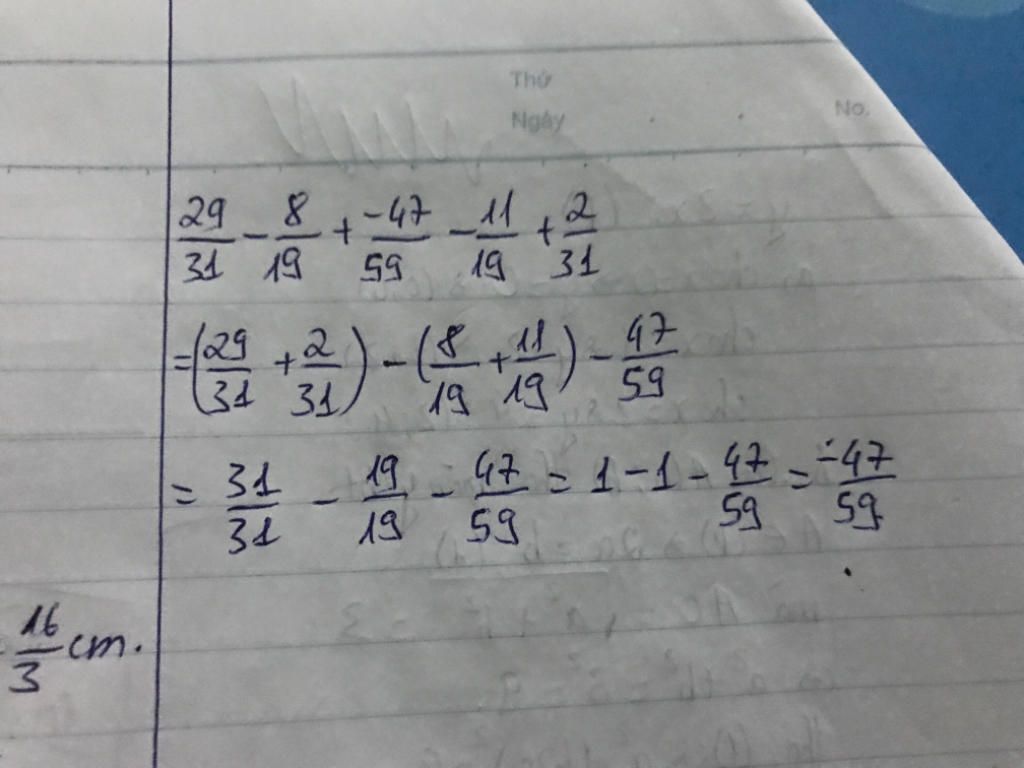 Thứ
Ngày No.
29/31 - 8/19 + -47/59 - 11/19 + 2/31
= (29/31 + 2/31) - (8/19 + 11/19) - 47/59
= 31/31 - 19/19 - 47/59 = 1 - 1 - 47/59 = -47/59
16/3 cm.